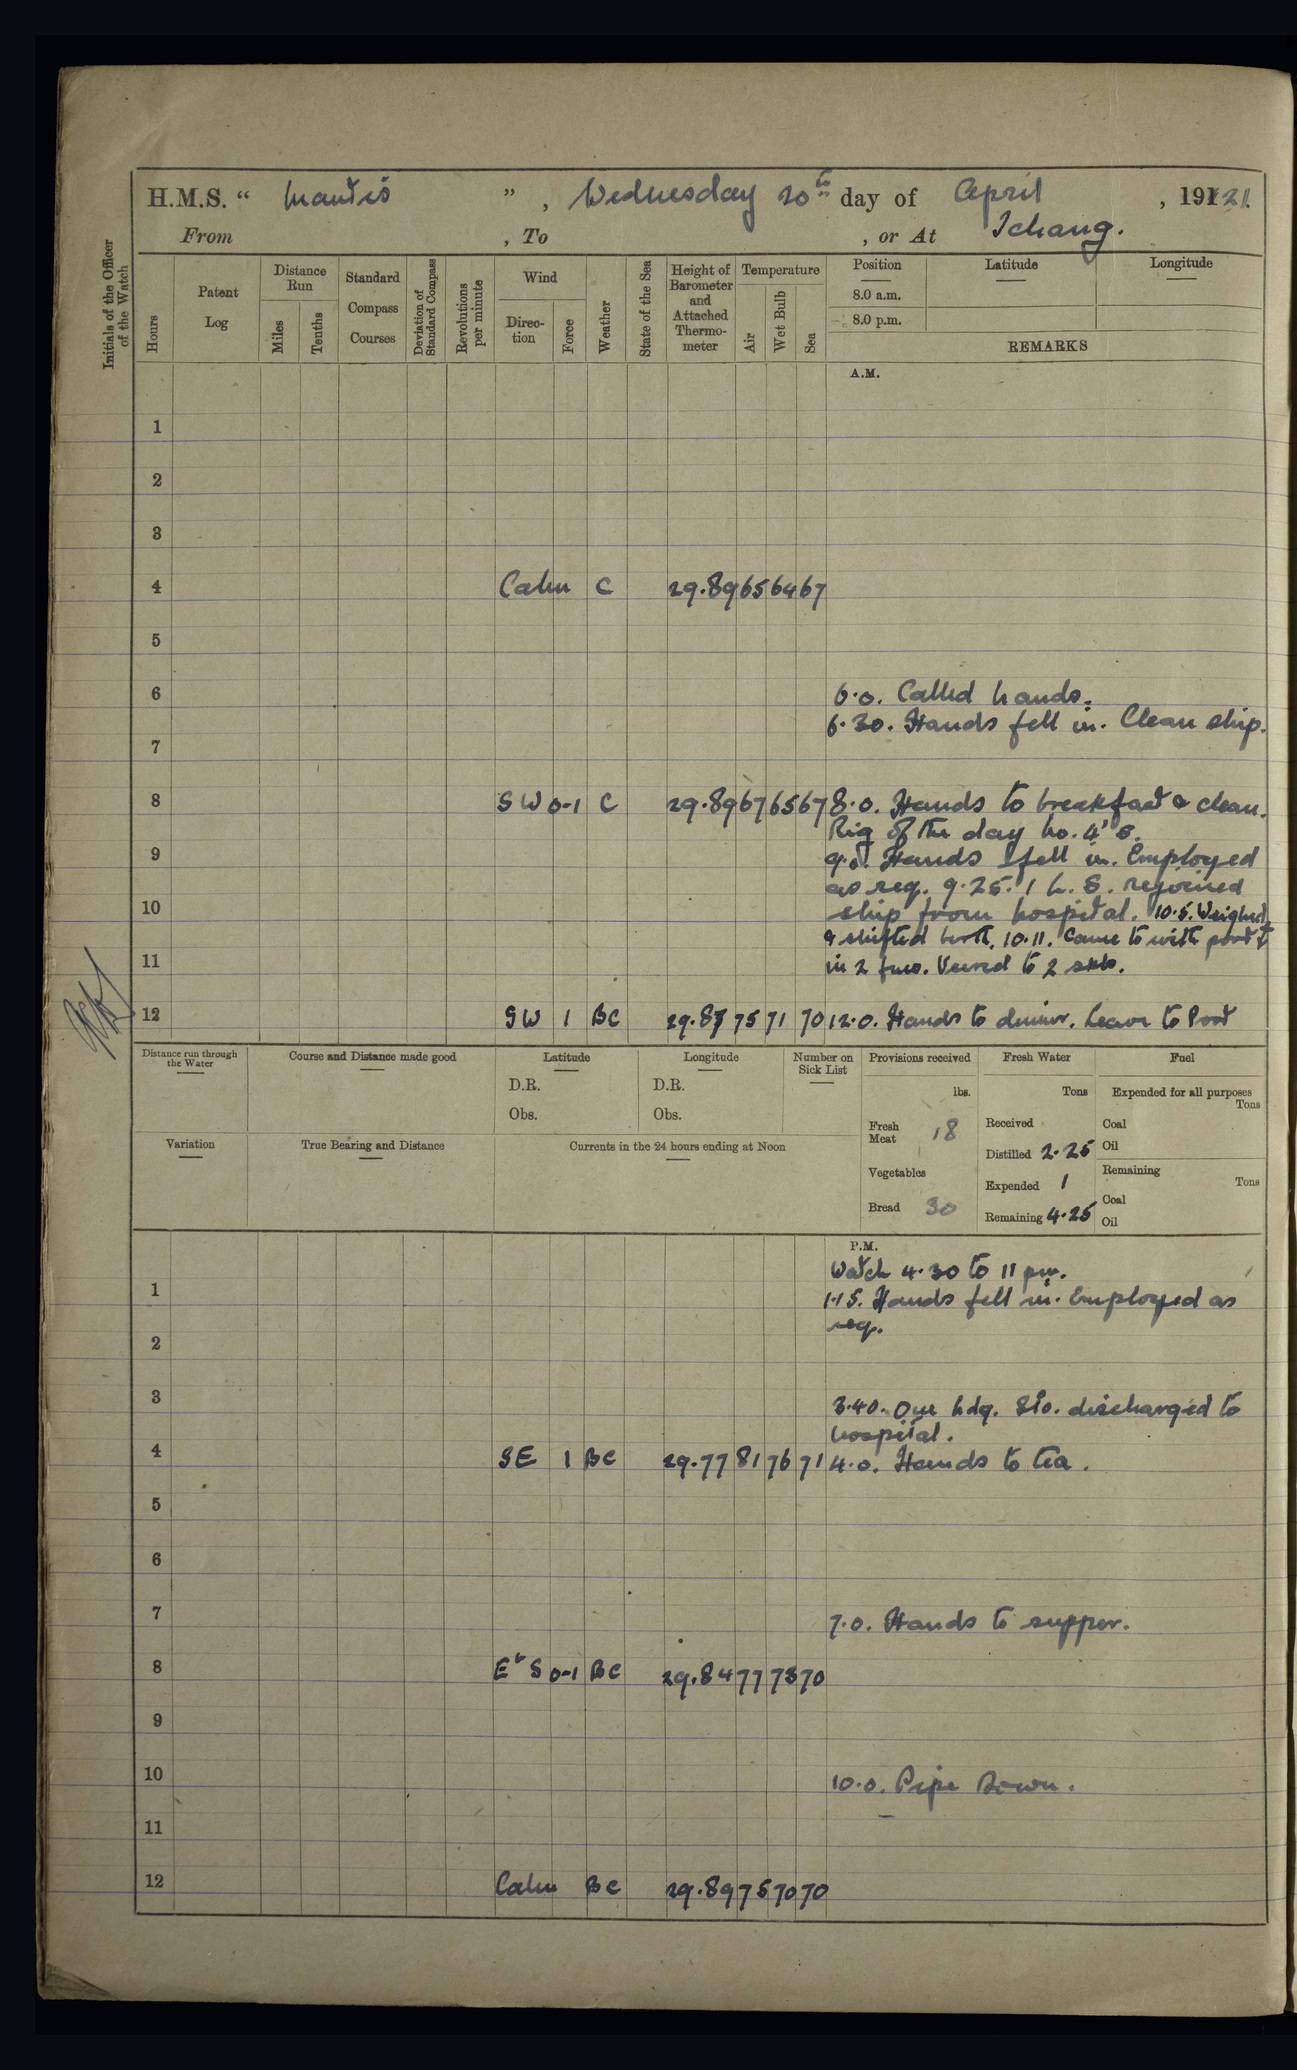 H.M.S. “ Mantis ” , Wednesday 20th day of April , 1921.
From , To , or At Ichang.
Initials of the Officer of the Watch
Hours
Patent Log
Distance Run
Miles
Tenths
Standard Compass Courses
Deviation of Standard Compass
Revolutions per minute
Wind
Direction
Force
Weather
State of the Sea
Height of Barometer and Attached Thermometer
Temperature
Air
Wet Bulb
Sea
Position
Latitude
Longitude
8.0 a.m.
8.0 p.m.
REMARKS
A.M.
1
2
3
4 Calm C 29.89 65 64 67
5
6 6.0. Called hands.
6.30. Hands fell in. Clean ship.
7
8 SW 0-1 C 29.89 67 65 67 8.0. Hands to breakfast & clean.
Rig of the day No. 4's.
9 9.0. Hands fell in. Employed
as req. 9.25. 1 L.S. rejoined
10 ship from hospital. 10.5. Weighed
& shifted berth. 10.11. Came to with port
11 in 2 fms. Veered to 2 shks.
12 SW 1 BC 29.87 75 71 70 12.0. Hands to dinner. Leave to Port
Distance run through the Water
Course and Distance made good
Latitude
D.R.
Obs.
Longitude
D.R.
Obs.
Number on Sick List
Provisions received
lbs.
Fresh Meat 18
Vegetables
Bread 30
Fresh Water
Tons
Received
Distilled 2.25
Expended 1
Remaining 4.25
Fuel
Expended for all purposes
Tons
Coal
Oil
Remaining
Tons
Coal
Oil
Variation
True Bearing and Distance
Currents in the 24 hours ending at Noon
P.M.
Watch 4.30 to 11 pm.
1 1.15. Hands fell in. Employed as
req.
2
3 3.40. One Ldg. Sto. discharged to
hospital.
4 SE 1 BC 29.77 81 76 71 4.0. Hands to tea.
5
6
7 7.0. Hands to supper.
8 E b S 0-1 BC 29.84 77 73 70
9
10 10.0. Pipe Down.
11
12 Calm BC 29.89 75 70 70